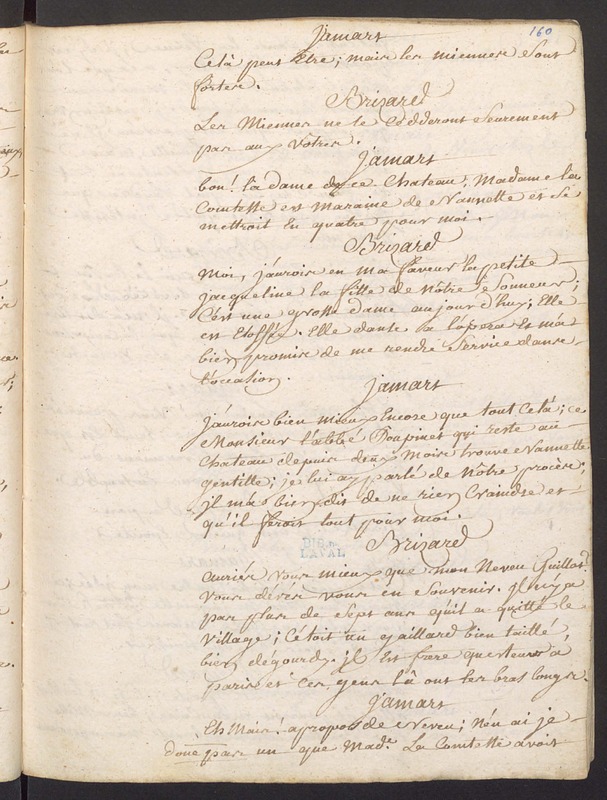 160
jamart
Cela peut Etre; mais les miennes Sont
fortes.
Brizard
Les Miennes ne le Cedderont Seurement
pas aux Votres.
jamart
bon! la dame de ce Chateau, Madame la
Comtesse est Maraine de Nannette et Se
mettroit En quatre pour moi.
Brizard
Moi, j'aurois en ma faveur la petite
jacqueline la fille de Nôtre Sonneur;
C'est une grosse dame aujourd'huy; Elle
est Etoffée. Elle danse a l'opera Et m'a
bien promis de me rendre Service dans
l'occasion.
jamart
j'aurois bien mieux Encore que tout Cela; ce
Monsieur l'abbé Poupinet qui reste au
Chateau depuis deux Mois trouve Nannette
gentille; je lui ay parlé de Nôtre procès.
jl m'a bien dit de ne rien Craindre et
qu'il feroit tout pour moi.
Brizard
auriés Vous mieux que mon Neveu Guillot
Vous devés vous en Souvenir. jl n'y a
pas plus de Sept ans qu'il a quitté le
Village; C'étoit un gaillard bien taillé,
bien dégourdy. jl Est frere questeur a
paris et Ces gens là ont les bras longs.
jamart
Eh Mais! apropos de Neveu; N'en ai je
donc pas un que Made. La Comtesse avoit
BIB.
LAVAL